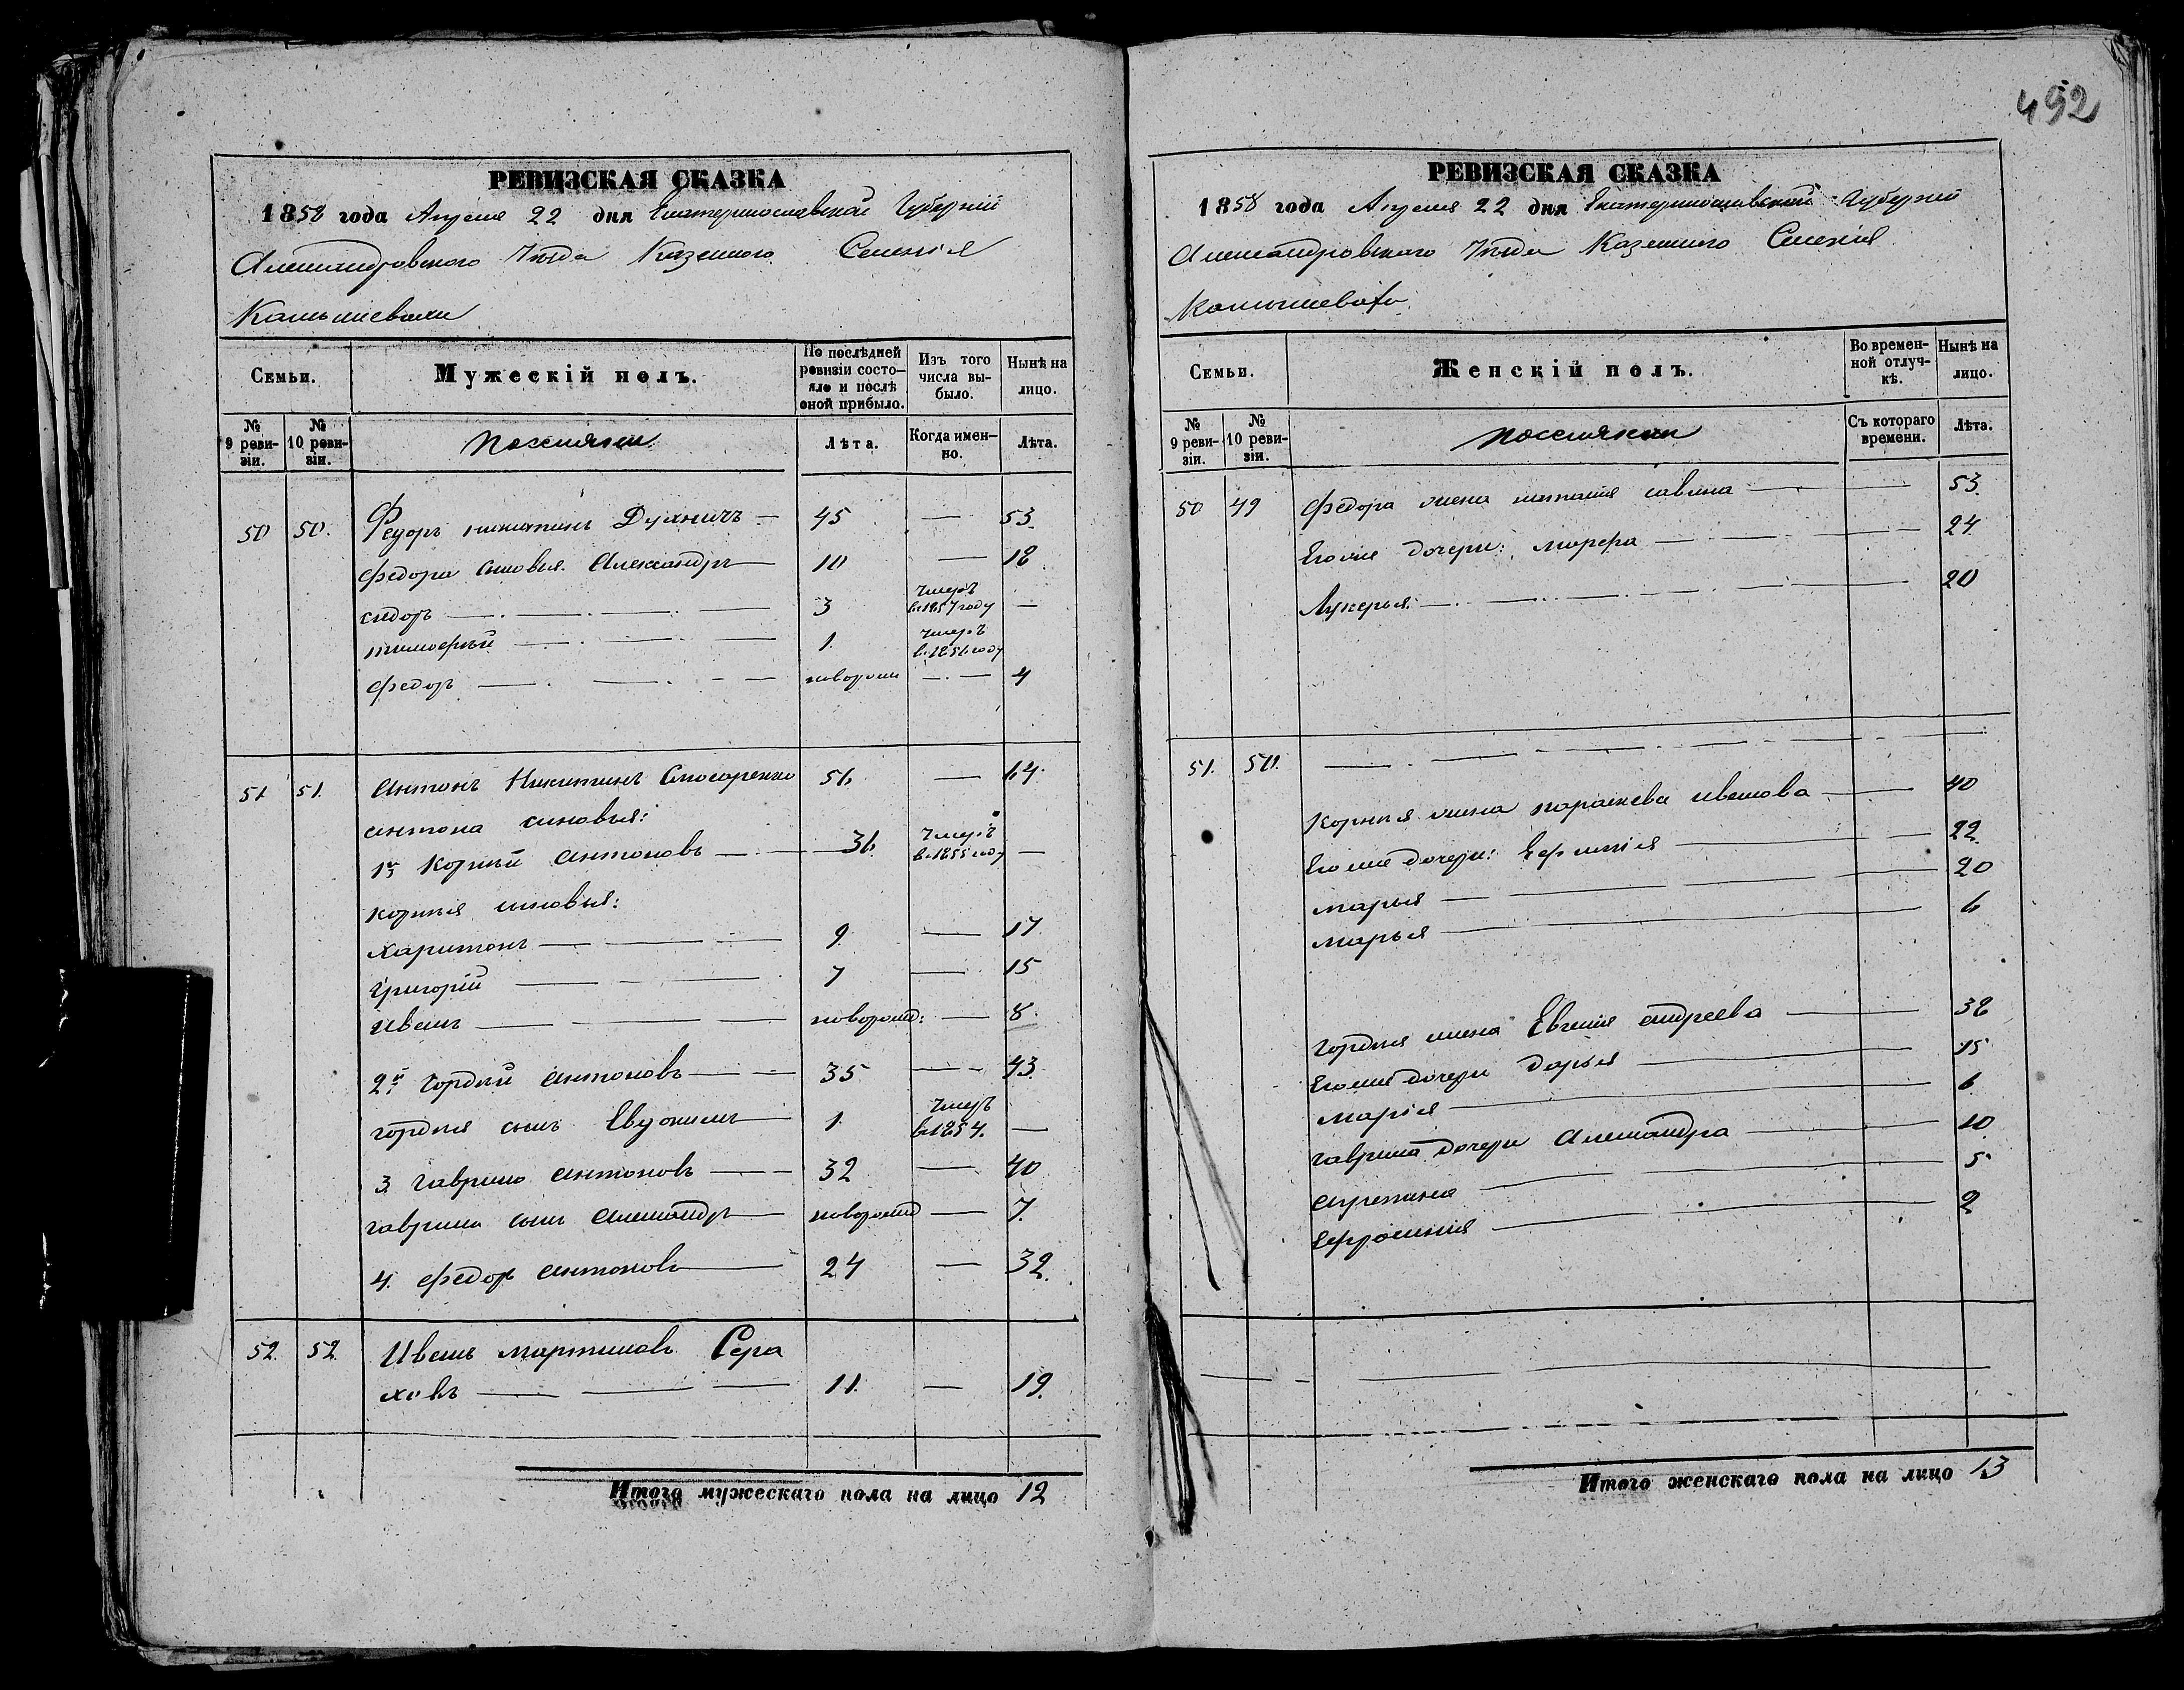 492
РЕВИЗСКАЯ СКАЗКА
1858 года Апреля 22 дня Екатеринославской Губернии
Александровского Уезда Казенного Селения
Камышевахи
Семьи.
Мужескій полъ.
По послѣдней ревизіи состояло и послѣ оной прибыло.
Изъ того числа выбыло.
Нынѣ на лицо.
№ 9 ревизіи.
№ 10 ревизіи.
Поселяне
Лѣта.
Когда именно.
Лѣта.
50 50. Федоръ Никитинъ 45 — 53.
Федора сыновья Александръ 10 — 18
Сидоръ 3 Умеръ в 1857 году —
Тимофей 1. Умеръ в 1851 году
Федоръ новорож — 4
51 51. Антонъ Никитинъ Слюсаренко 56 — 64.
Антона сыновья:
1й Корней Антоновъ 36 Умеръ в 1855 году —
Корнея сыновья:
Харитонъ 9. — 17.
Григорій 7 — 15
Иванъ новорожд: — 8.
2й Гордей Антоновъ 35 — 43.
Гордея сынъ Евдокимъ 1. Умеръ в 1854. —
3. Гаврило Антоновъ 32 — 40
Гаврила сынъ Александръ новорожд — 7.
4. Федоръ Антоновъ 24 — 32.
52. 52. Иванъ Мартиновъ Сера
ховъ 11. — 19.
Итого мужескаго пола на лицо 12
РЕВИЗСКАЯ СКАЗКА
1858 года Апреля 22 дня Екатеринославской Губернии
Александровского Уезда Казенного Селения
Камышеваха
Семьи.
Женскій полъ.
Во временной отлучкѣ.
Нынѣ на лицо.
№ 9 ревизіи.
№ 10 ревизіи.
Поселянки
Съ котораго времени.
Лѣта.
50 49 Федора жена Наталия Савина — 53.
Его же дочери: Марфа — 24
Лукерья. — 20
51. 50.
Корнея жена Парасковея Иванова — 40
Его же дочери: — 22.
Марья 20
Марья 6
Гордея жена Евгения Андреева — 38
Его же дочери Дарья 15
Мария 6
Гаврила дочери Александра 10
5
Ефросиния 2
Итого женскаго пола на лицо 13